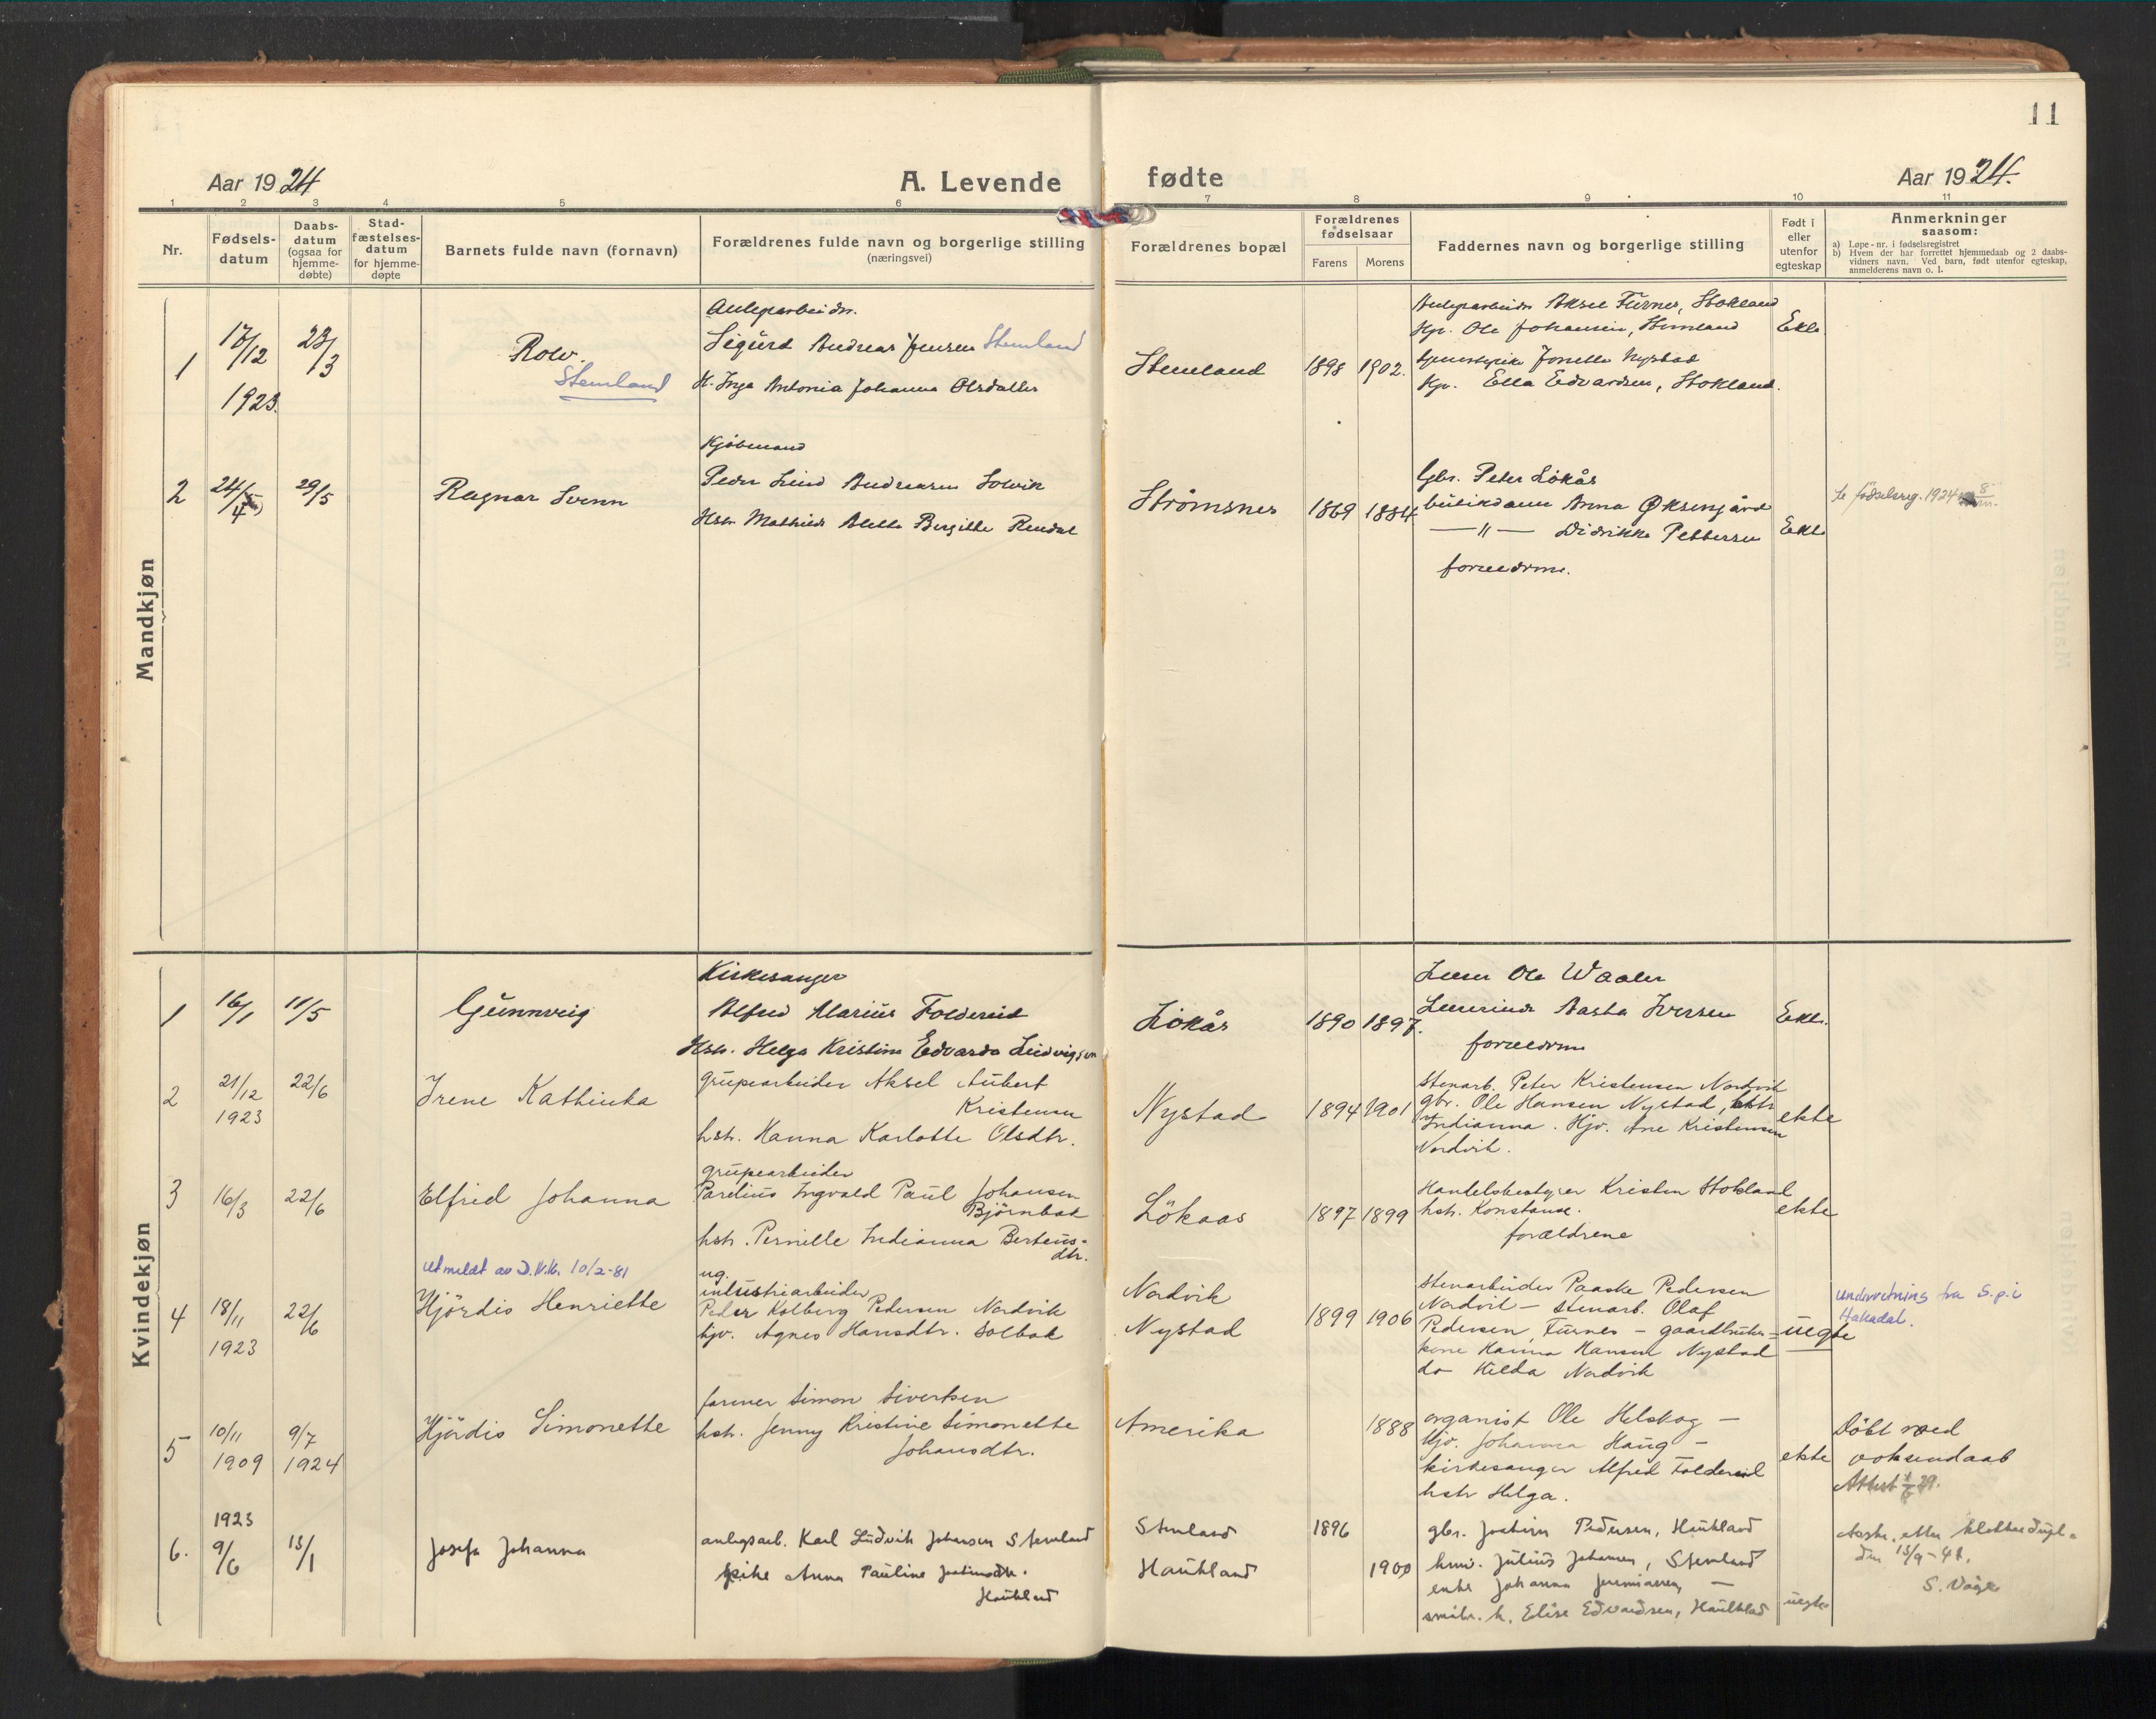 11
Aar 1924
A. Levende fødte
Aar 1924.
1 2 3 4 5 6 7 8 9 10 11
Nr.
Fødsels-
datum
Daabs-
datum
(ogsaa for
hjemme-
døbte)
Stad-
fæstelses-
datum
for hjemme-
døpte
Barnets fulde navn (fornavn)
Forældrenes fulde navn og borgerlige stilling
(næringsvei)
Forældrenes bopæl
Forældrenes
fødselsaar
Farens Morens
Faddernes navn og borgerlige stilling
Født i
eller
utenfor
egteskap
Anmerkninger
saasom:
a) Løpe-nr. i fødselsregistret
b) Hvem der har forrettet hjemmedaab og 2 daabs-
vidners navn. Ved barn, født utenfor egteskap,
anmelderens navn o. l.
Mandkjøn
1
17/12
1923.
23/3
Rolv.
Stemland
Anlegsarbeider.
Sigurd Andreas Jensen Stemland
H. Inga Antonia Johanna Olsdatter
Stemland
1898 1902.
Anlegsarbeider Aksel Furnes, Stokland
Gbr. Ole Johansen, Stemland
Jonette Nystad
Ella Edvardsen, Stokland.
Ekte
2
24/4
29/5
Ragnar Svenn
Kjøbmand
Peder Lind Andreasen Solvik
Hstr. Mathilde Bergitte Rendal
Strömsnes
1869 1884
Gbr. Peter Lökås
butikdame Anna Øksengård
— " — Didrikke Pettersen
forældrene.
Ekte
Se fødselsreg. 1924 8
Kvindekjøn
1
16/1
11/5
Gunnveig
Kirkesanger
Alfred Marius Foldereid
Hstr. Helga Kristine Edvarda Ludvigsen
Lökås
1890 1897.
Lærer Ole Waaler
Lærerinde Aasta Iversen
forældrene
Ekte.
2
21/12
1923
22/6
Irene Kathinka
grubearbeider Aksel Aubert
Kristensen
hstr. Hanna Karlotte Olsdtr.
Nystad
1894 1901
stenarb. Peter Kristensen Nordvik
gbr. Ole Hansen Nystad, hstr
Indianna. Hjv. Ane Kristensen
Nordvik.
ekte
3
16/3
22/6
Elfrid Johanna
grubearbeider
Parelius Ingvald Paul Johansen
Björnbak
hstr. Pernille Indianna Berteus-
dtr.
Lökaas
1897 1899
Handelsbestyrer Kristen Stokland
hstr. Konstanse.
forældrene
ekte
utmeldt av D.N.K. 10/2-81
4
18/11
1923
22/6
Hjördis Henriette
ug.
industriarbeider
Peder Kolberg Pedersen Nordvik
hjv. Agnes Hansdtr. Solbak
Nordvik
Nystad
1899 1906
stenarbeider Paaske Pedersen
Nordvik — stenarb. Olaf
Pedersen Furnes — gaardbruker-
kone Hanna Hansen Nystad
do Hilda Nordvik
uegte
underretning fra S.p. i
Hakadal.
5
10/11
1909
9/7
1924
Hjördis Simonette
farmer Simon Sivertsen
hstr. Jenny Kristine Simonette
Johansdtr.
Amerika
1888
organist Ole Helskog —
hjv. Johanna Haug —
kirkesanger Alfred Foldereid
hstr Helga.
ekte
Döbt ved
voksendaab
Attest
6.
1923
9/6
13/1
Josefa Johanna
anlegsarb. Karl Ludvik Johansen Stemland
pike Anna Pauline Joakimsdtr.
Haukland
Stemland
Haukland
1896
1900
gbr. Joakim Pedersen, Haukland
Julius Johansen, Stemland
enke Johanna Jeremiassen, —
Elise Edvardsen, Haukland
uegte
etter klokkerdupl.
den 13/9-41.
S. Våge